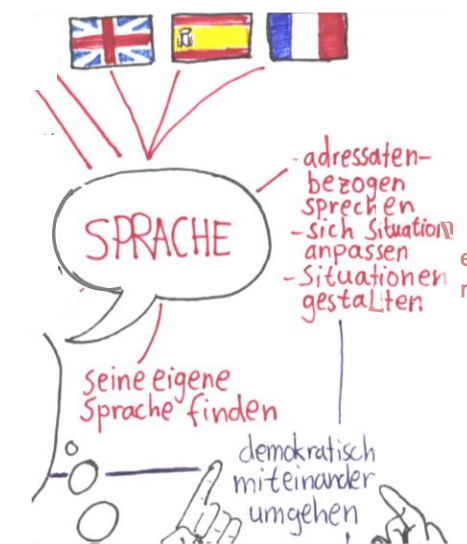 SPRACHE
- adressaten-
bezogen
sprechen
- sich Situation
anpassen
- Situationen
gestalten
seine eigene
Sprache finden
demokratisch
miteinander
umgehen